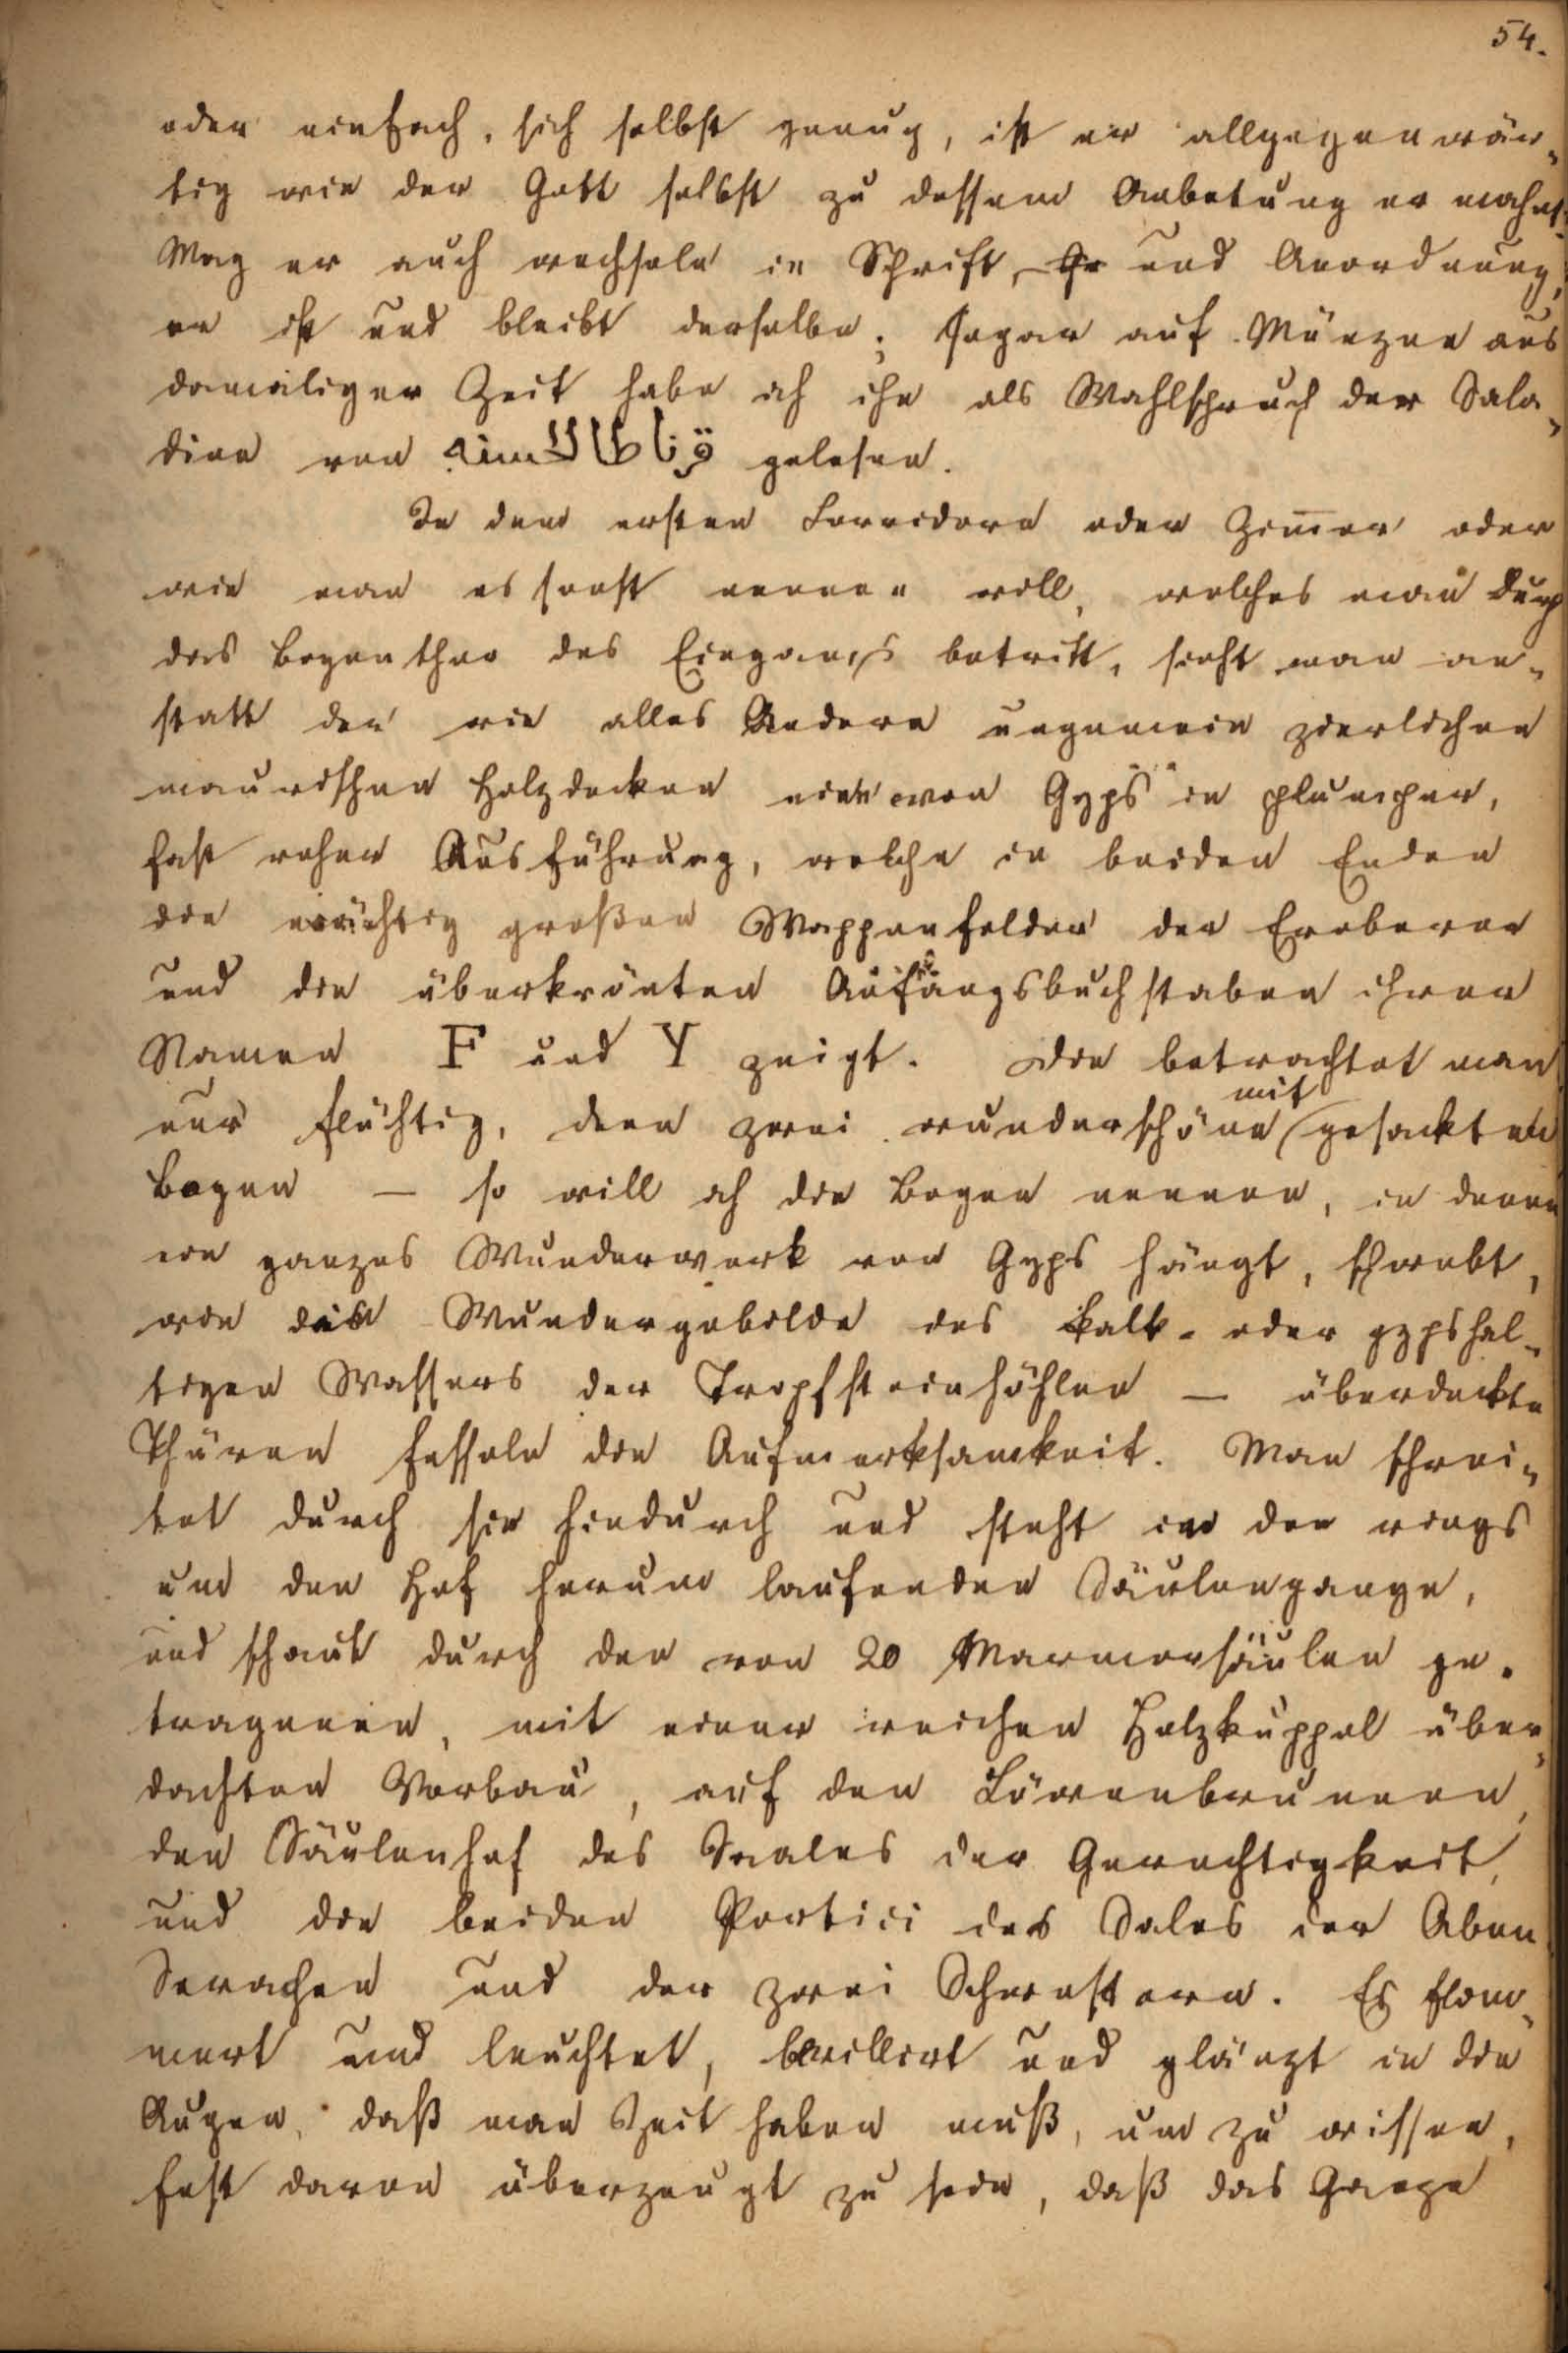 54.
oder einfach, sich selbst genug, ist er allgegenwär-
tig wie der Gott selbst zu dessem Anbetung er mahnt.
Mag er auch wechseln in Schrift, und Anordnung,
er ist und bleibt derselbe; sogar auf Münzen aus
damaliger Zeit habe ich ihn als Wahlspruch der Sala-
dine von gelesen.
In dem ersten Corridore oder Zim̅er oder
wie man es sonst nennen will, welches man durch
das Bogenthor des Eingangs betritt, sieht man an-
statt der wie alles Andere ungemein zierlichen
maurischen Holzdecken eine von Gyps in plumper,
fast roher Ausführung, welche in beiden Enden
die mächtig großen Wappenfelder der Eroberer
und die überkrönten Anfangsbuchstaben ihrer
Namen F und Y zeigt. Die betrachtet man
nur flüchtig, denn zwei wunderschöne mit gesackten
Bogen — so will ich die Bogen nennen, in denen
ein ganzes Wunderwerk von Gyps hängt, schwebt,
wie die Wundergebilde des kalk- oder gypshal-
tigen Wassers der Tropfsteinhöhlen — überdeckte
Thüren fesseln die Aufmerksamkeit. Man schrei-
tet durch sie hindurch und steht in der rings
um den Hof herum laufenden Säulengange,
und schaut durch den von 20 Marmorsäulen ge-
tragenen, mit einer reichen Holzkuppel über-
dachten Vorbau, auf den Löwenbrunnen,
den Säulenhof des Saales der Gerechtigkeit,
und die beiden Portici des Sales der Aben
Serachen und der zwei Schwestern. Es flim-
mert und leuchtet, brillirt und glänzt in die
Augen, daß man Zeit haben muß, um zu wissen,
fest davon überzeugt zu sein, daß das Ganze